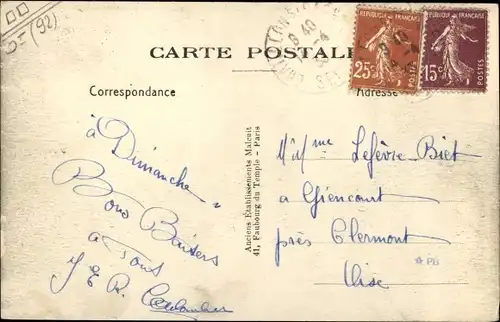 (92)
CARTE POSTALE
Correspondance
Adresse
REPUBLIQUE FRANÇAISE
25c
POSTES
REPUBLIQUE FRANÇAISE
15c
POSTES
à Dimanche
Bons Baisers
à Tous
Anciens Établissements Malcuit
41, Faubourg du Temple - Paris
Mr Mme Lefèvre-Biet
à Giencourt
près Clermont
Oise
* PB